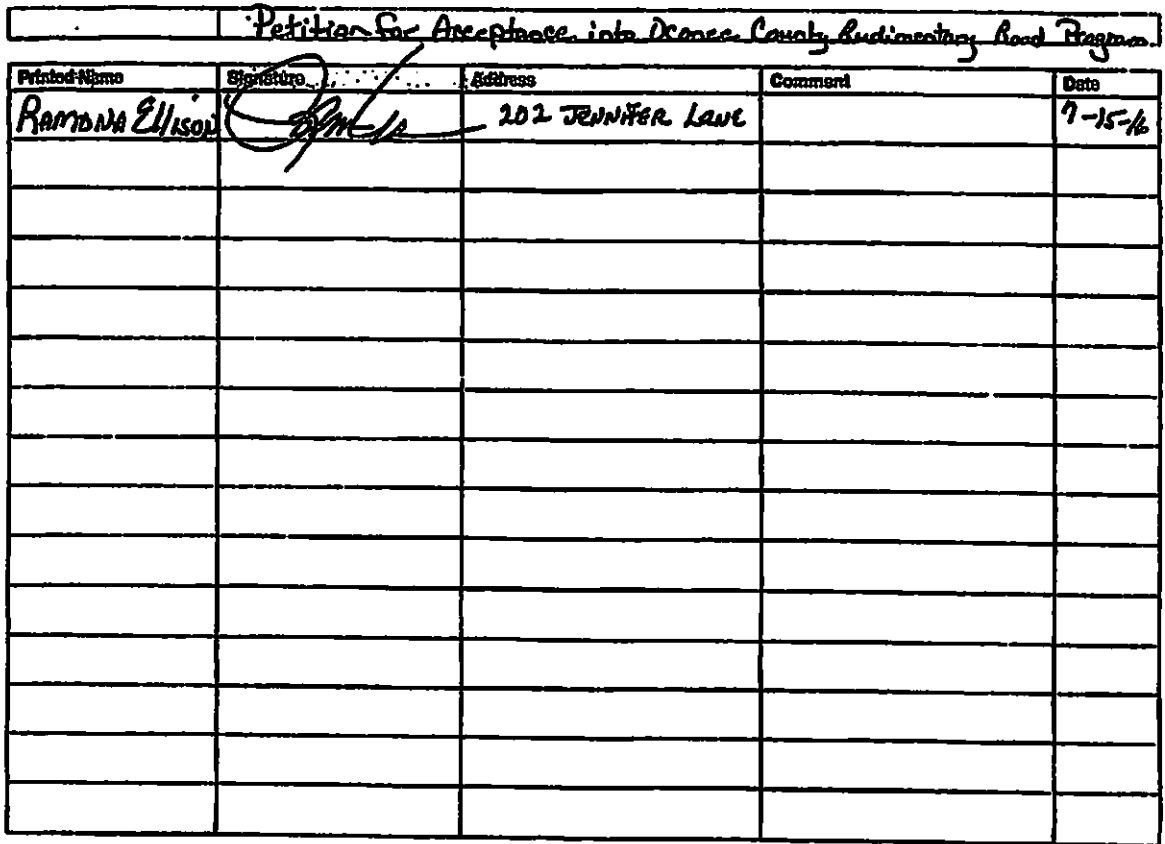 Petition for Acceptance into Oconee County Rudimentary Road Program
Printed Name Signature Address Comment Date
RAMONA Ellison 202 JENNIFER LANE 7-15-16